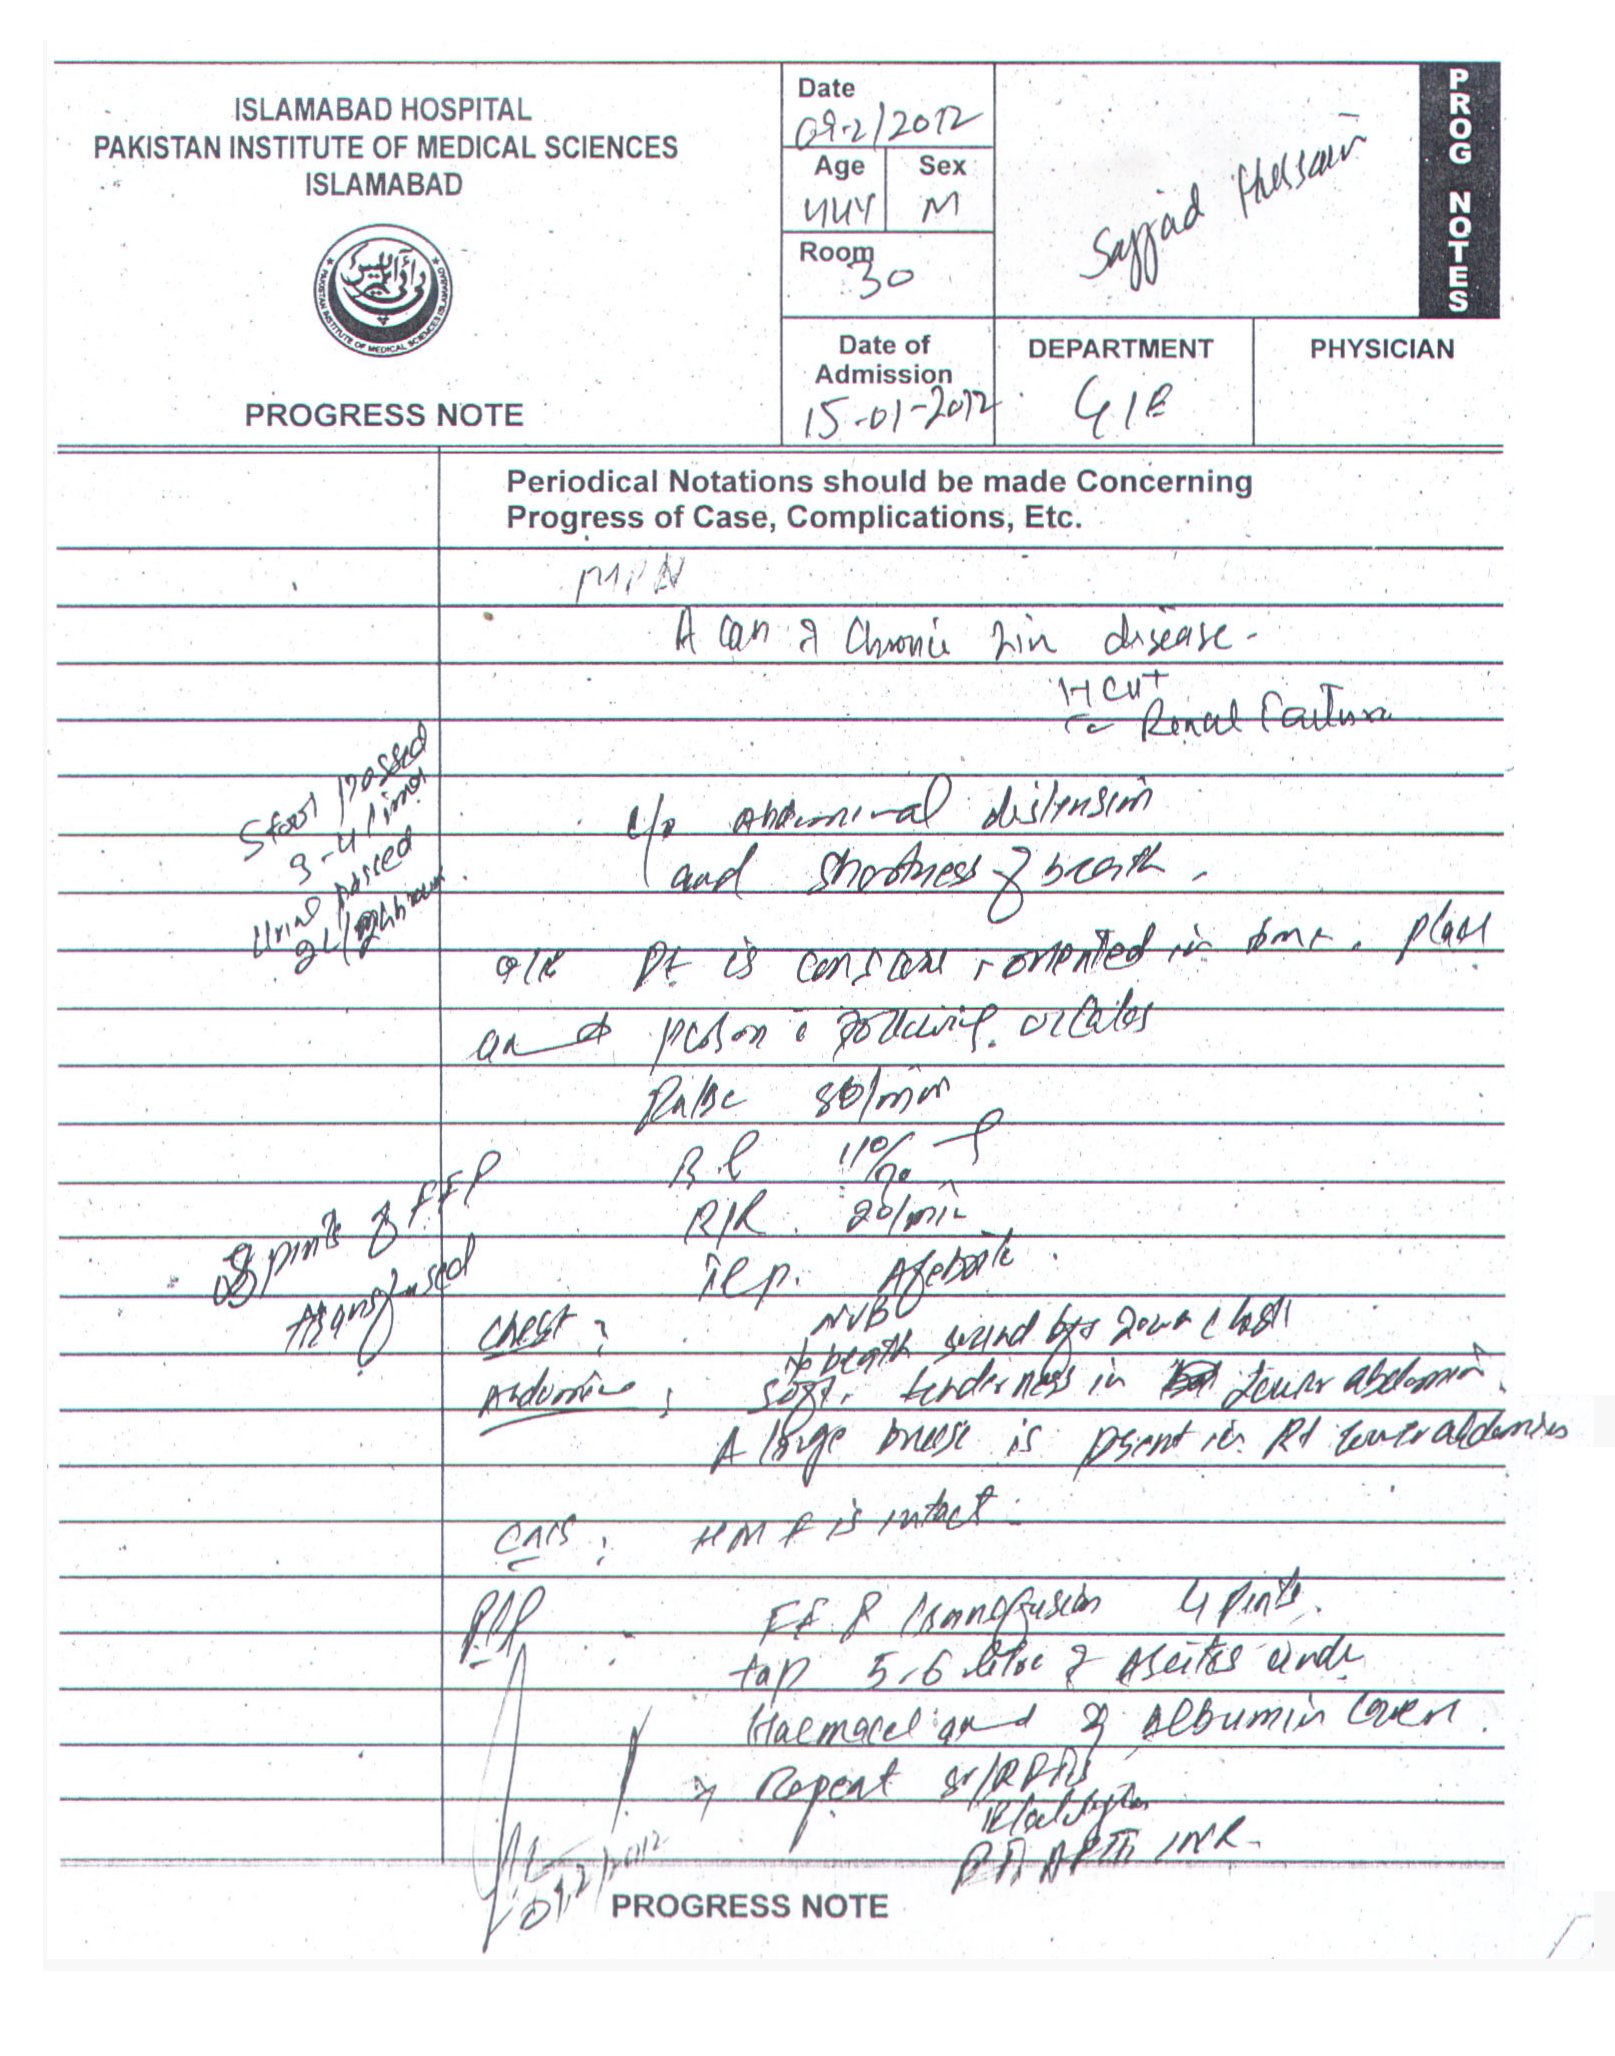 ISLAMABAD HOSPITAL
PAKISTAN INSTITUTE OF MEDICAL SCIENCES
ISLAMABAD
PROGRESS NOTE
Date
09-2/2012
Age
44Y
Sex
M
Room
30
Date of
Admission
15-01-2012
Sajjad Hussain
DEPARTMENT
GIE
PHYSICIAN
PROG NOTES
Periodical Notations should be made Concerning
Progress of Case, Complications, Etc.
MPN
A Chronic disease -
HCV+
Renal Failure
Stool passed
3-4 times
passed
2L/24 hours
c/o abdominal distension
and shortness of breath.
Pt is oriented in time, place
and person
Pulse /min
B.P 110/70
R/R 20/min
Afebrile.
pints of FFP
transfused
Chest: NVB
breath sound
soft, tenderness in lower abdomen.
A large is present in Rt lower abdomen
CNS: HMF is intact.
4 pints.
tap 5-6 litre of Ascites under
Haemaccel and Albumin cover.
Repeat RFTs
PT, APTT, INR.
09/2/2012
PROGRESS NOTE